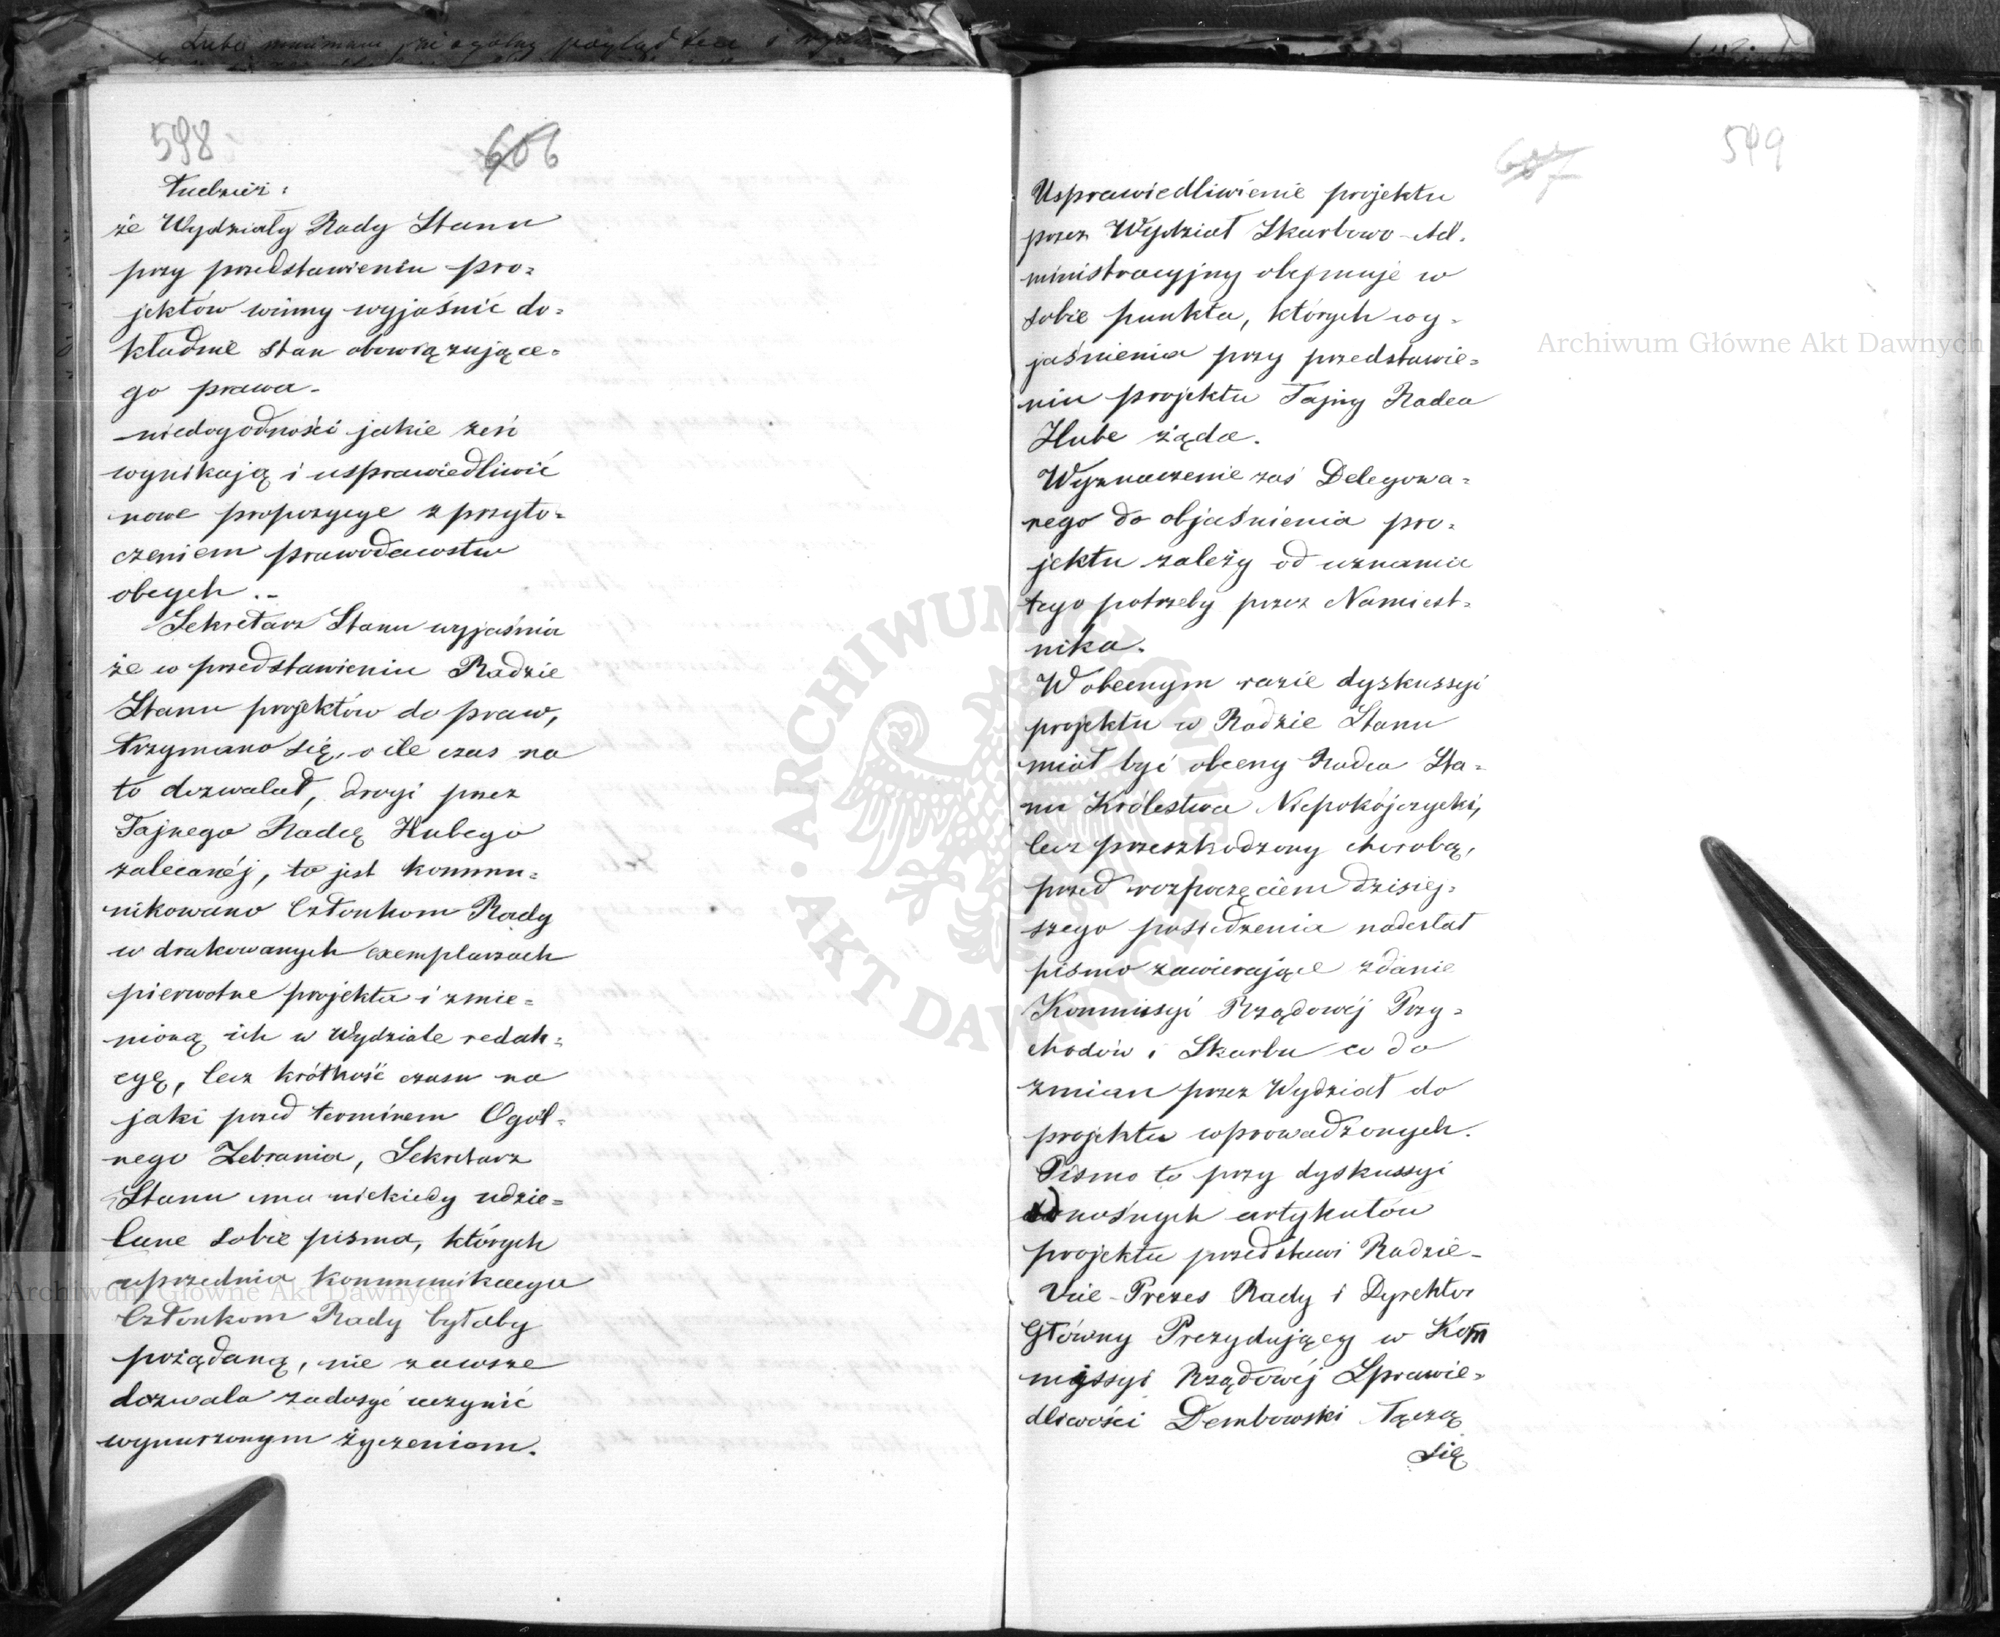 598
606
Tudzież:
że Wydziały Rady Stanu
przy przedstawieniu pro=
jektów winny wyjaśnić do=
kładnie stan obowiązujące=
go prawa.
niedogodności jakie zeń
wynikają i usprawiedliwić
nowe propozycye z przyto=
czeniem prawodawstw
obcych.-
Sekretarz Stanu wyjaśnia
że w przedstawieniu Radzie
Stanu projektów do praw,
trzymano się, o ile czas na
to dozwalał, drogi przez
Tajnego Radcę Hubego
zalecanéj, to jest kommu=
nikowano Członkom Rady
w drukowanych exemplarzach
pierwotne projekta i zmie=
nioną ich w Wydziale redak=
cyę, lecz krótkość czasu na
jaki przed terminem Ogól=
nego Zebrania, Sekretarz
Stanu ma niekiedy udzie=
lane sobie pisma, których
uprzednia kommunikacya
Członkom Rady byłaby
pożądaną, nie zawsze
dozwala zadosyć uczynić
wynurzonym życzeniom.
607
599
Usprawiedliwienie projektu
przez Wydział Skarbowo-Ad.
ministracyjny obejmuje w
sobie punkta, których wy=
jaśnienia przy przedstawie=
niu projektu Tajny Radca
Hube żąda.
Wyznaczenie zaś Delegowa=
nego do objaśnienia pro=
jektu zależy od uznania
tego potrzeby przez Namiest=
nika.
W obecnym razie dyskussyi
projektu w Radzie Stanu
miał być obecny Radca Sta=
nu Królestwa Niepokójczycki,
lecz przeszkodzony chorobą,
przed rozpoczęciem dzisiej=
szego posiedzenia nadesłał
pismo zawierające zdanie
Kommissyi Rządowéj Przy=
chodów i Skarbu co do
zmian przez Wydział do
projektu wprowadzonych.
Pismo to przy dyskussyi
odnośnych artykułów
projektu przedstawi Radzie-
Vice-Prezes Rady i Dyrektor
Główny Prezydujący w Kom
missyi Rządowéj Sprawie=
dliwości Dembowski łączą
się
Archiwum Główne Akt Dawnych
Archiwum Główne Akt Dawnych
ARCHIWUM GŁÓWNE AKT DAWNYCH